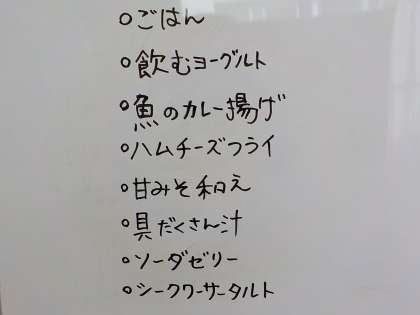 ○ごはん
○飲むヨーグルト
○魚のカレー揚げ
○ハムチーズフライ
○甘みそ和え
○具だくさん汁
○ソーダゼリー
○シークワーサータルト